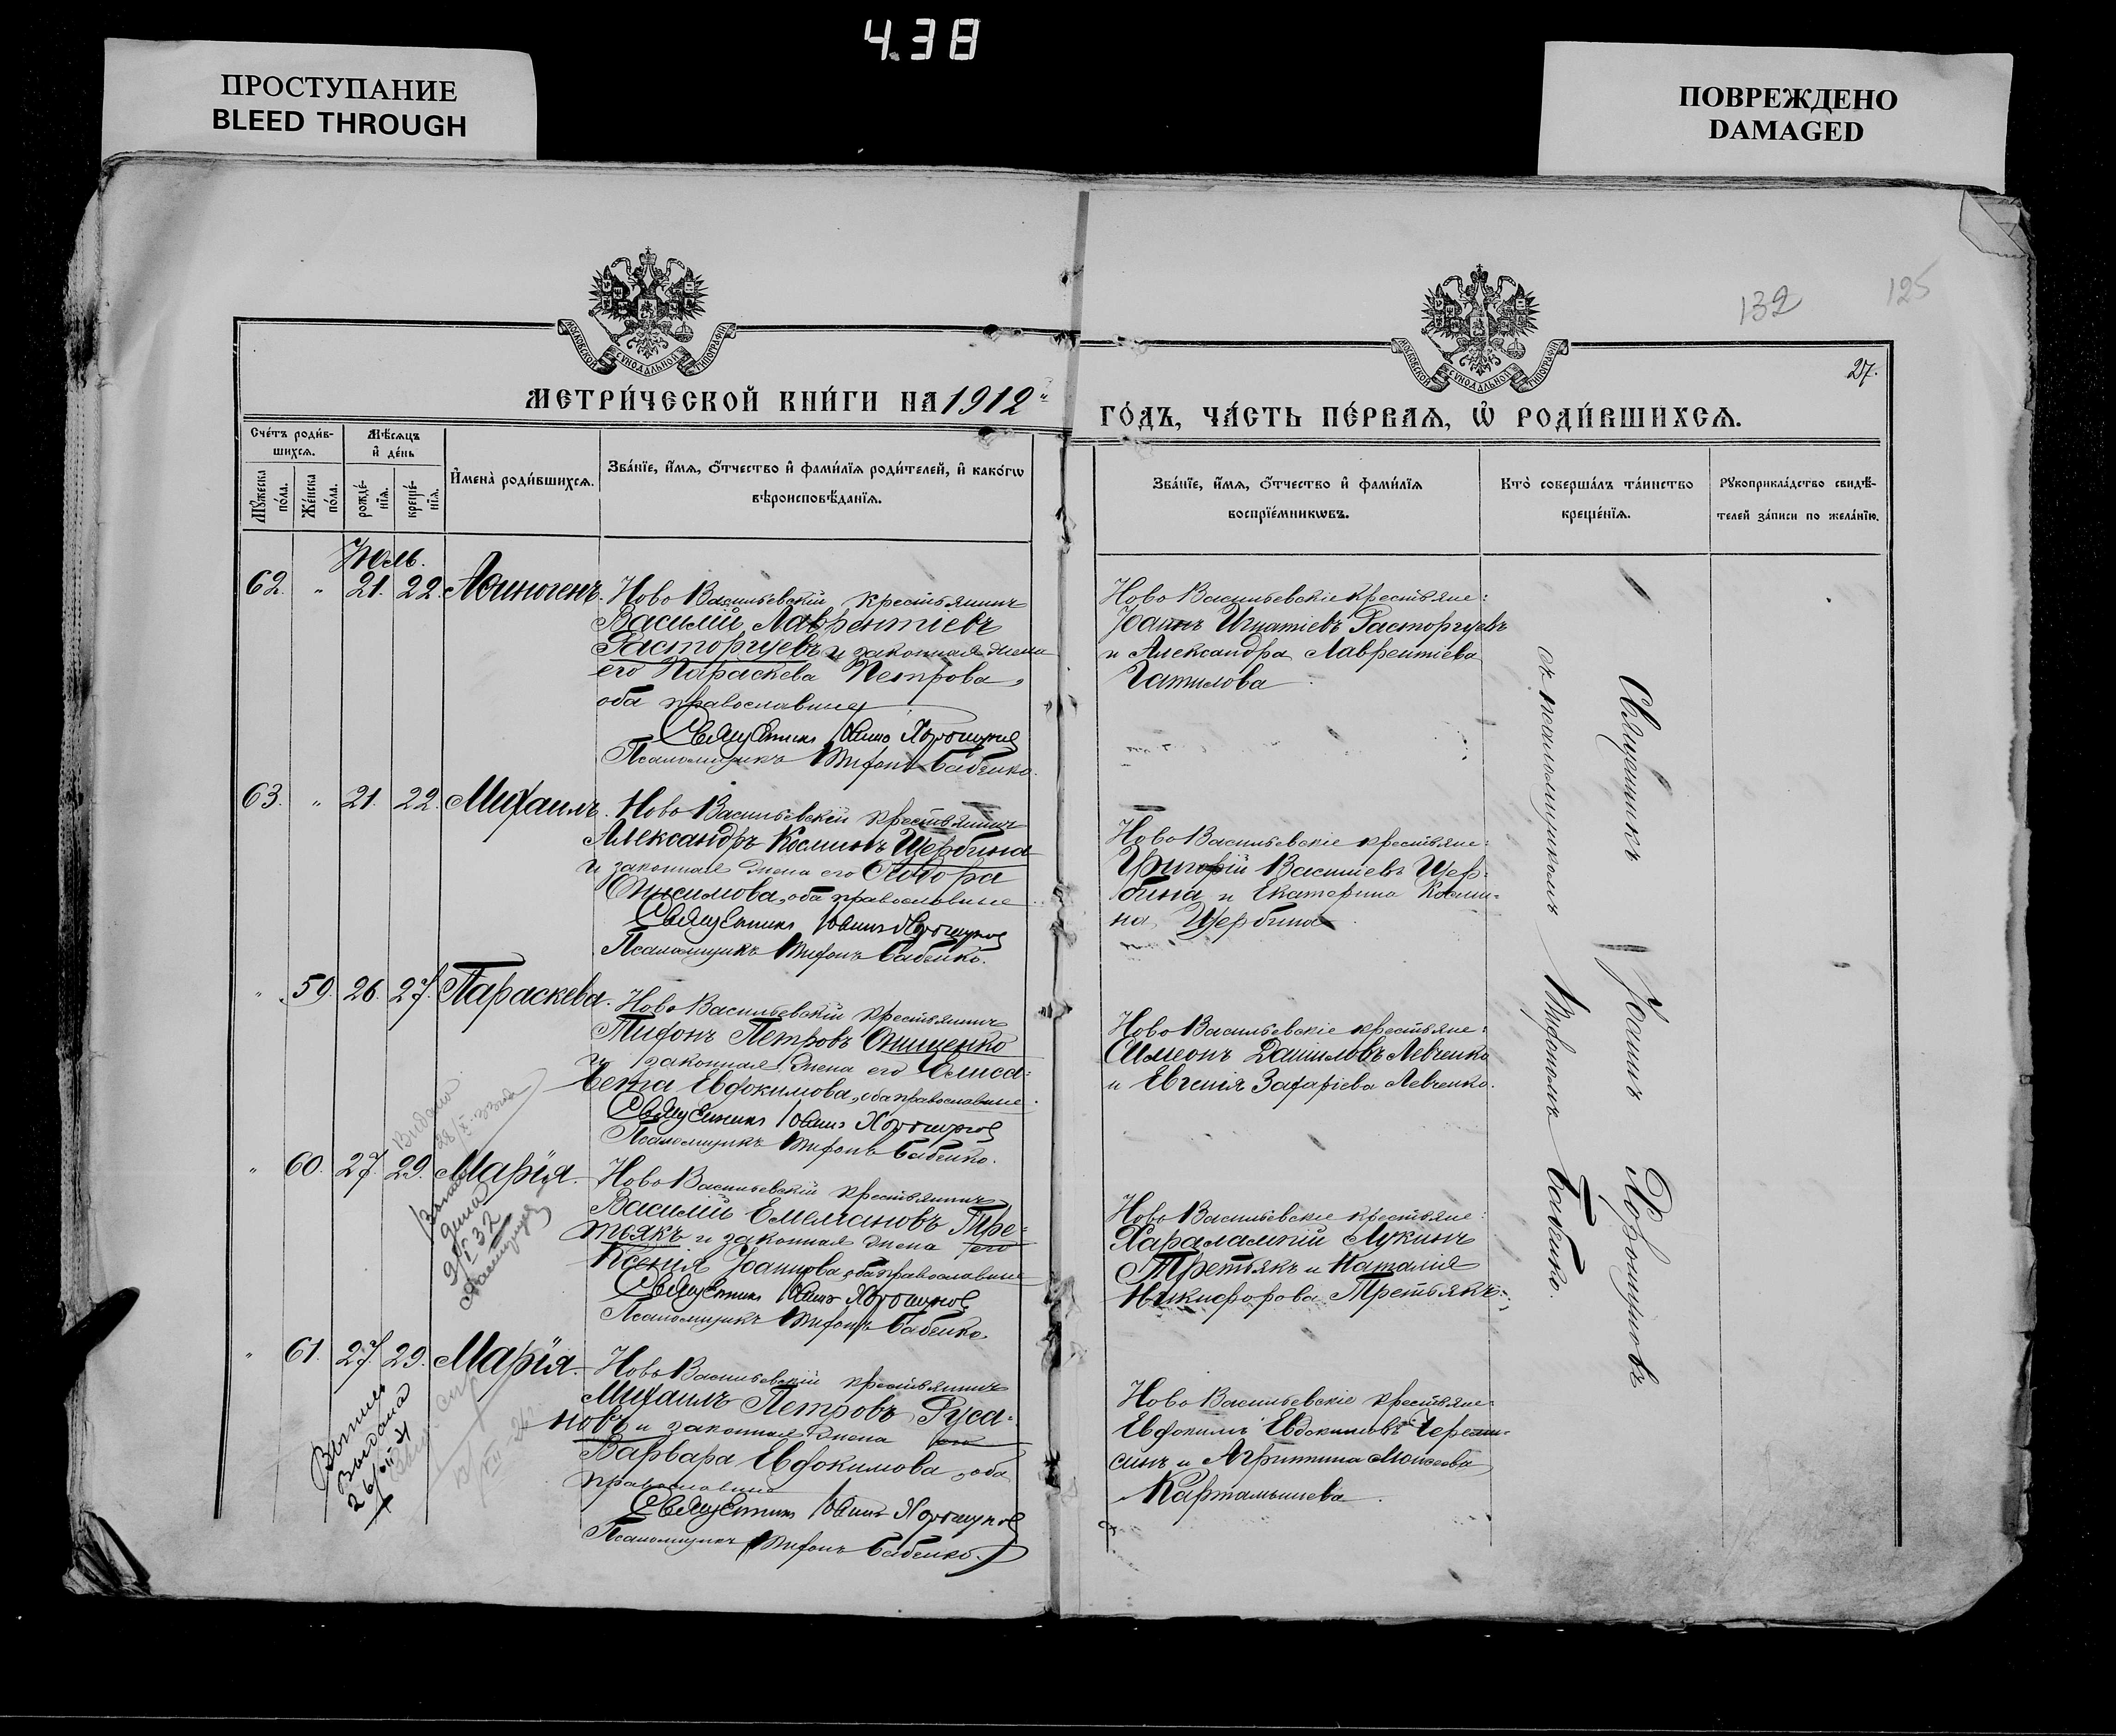 4.38
ПРОСТУПАНИЕ
BLEED THROUGH
ПОВРЕЖДЕНО
DAMAGED
132
125
МОСКОВСКОЙ СѴНОДАЛЬНОЙ ТИПОГРАФІИ
МОСКОВСКОЙ СѴНОДАЛЬНОЙ ТИПОГРАФІИ
27.
МЕТРИ́ЧЕСКОЙ КНИ́ГИ НА 1912й
ГО́ДЪ, ЧА́СТЬ ПЕ́РВАѦ, Ѡ҆ РОДИ́ВШИХСѦ.
Сче́тъ роди́в-
шихсѧ.
Мѣ́сѧцъ
и҆ де́нь
Мꙋ́жеска по́ла.
Же́нска по́ла.
рожде́-
нїѧ.
креще́-
нїѧ.
И҆мена̀ роди́вшихсѧ.
Зва́нїе, и҆́мѧ, ѻ҆́тчество и҆ фами́лїѧ роди́телей, и҆ како́гѡ
вѣроисповѣ́данїѧ.
Зва́нїе, и҆́мѧ, ѻ҆́тчество и҆ фами́лїѧ
воспрїе́мникѡвъ.
Кто̀ соверша́лъ та́инство
креще́нїѧ.
Рꙋкоприкла́дство свидѣ́-
телей за́писи по жела́нїю.
Іюль.
62. " 21. 22. Аѳиногенъ.
Ново Васильевскій крестьянинъ
Василій Лаврентіевъ
Расторгуевъ и законная жена
его Параскева Петрова,
оба православные
Священникъ Іоаннъ Хорошуновъ
Псаломщикъ Тифонъ Бабенко.
Ново Васильевскіе крестьяне:
Іоаннъ Игнатіевъ Расторгуевъ
и Александра Лаврентіева
Гатилова
63. " 21. 22. Михаилъ.
Ново Васильевскій крестьянинъ
Александръ Косминъ Щербина
и законная жена его Ѳеодора
Онисимова, оба православные
Священникъ Іоаннъ Хорошуновъ
Псаломщикъ Тифонъ Бабенко.
Ново Васильевскіе крестьяне:
Григорій Василіевъ Щер-
бина и Екатерина Косми-
на Щербина
" 59. 26. 27. Параскева.
Ново Васильевскій крестьянинъ
Тифонъ Петровъ Онищенко
и законная жена его Елиса-
вета Евдокимова, оба православные.
Священникъ Іоаннъ Хорошуновъ
Псаломщикъ Тифонъ Бабенко.
Ново Васильевскіе крестьяне:
Симеонъ Даниловъ Левченко
и Евгенія Захаріева Левченко.
" 60. 27. 29. Марія.
Ново Васильевскій крестьянинъ
Василій Емеліановъ Тре-
тьякъ и законная жена его
Ксенія Іоаннова, оба православные
Священникъ Іоаннъ Хорошуновъ
Псаломщикъ Тифонъ Бабенко.
Ново Васильевскіе крестьяне:
Харалампій Лукинъ
Третьякъ и Наталія
Никифорова Третьякъ.
" 61. 27. 29. Марія.
Ново Васильевскій крестьянинъ
Михаилъ Петровъ Руса-
новъ и законная жена его
Варвара Евдокимова, оба
православные
Священникъ Іоаннъ Хорошуновъ
Псаломщикъ Тифонъ Бабенко.
Ново Васильевскіе крестьяне:
Евдокимъ Евдокимовъ Череми-
синъ и Агриппина Моисеева
Картамышева.
Священникъ Іоаннъ Хорошуновъ
съ псаломщикомъ Тифономъ Бабенко.
Видано
Выпись
выдана